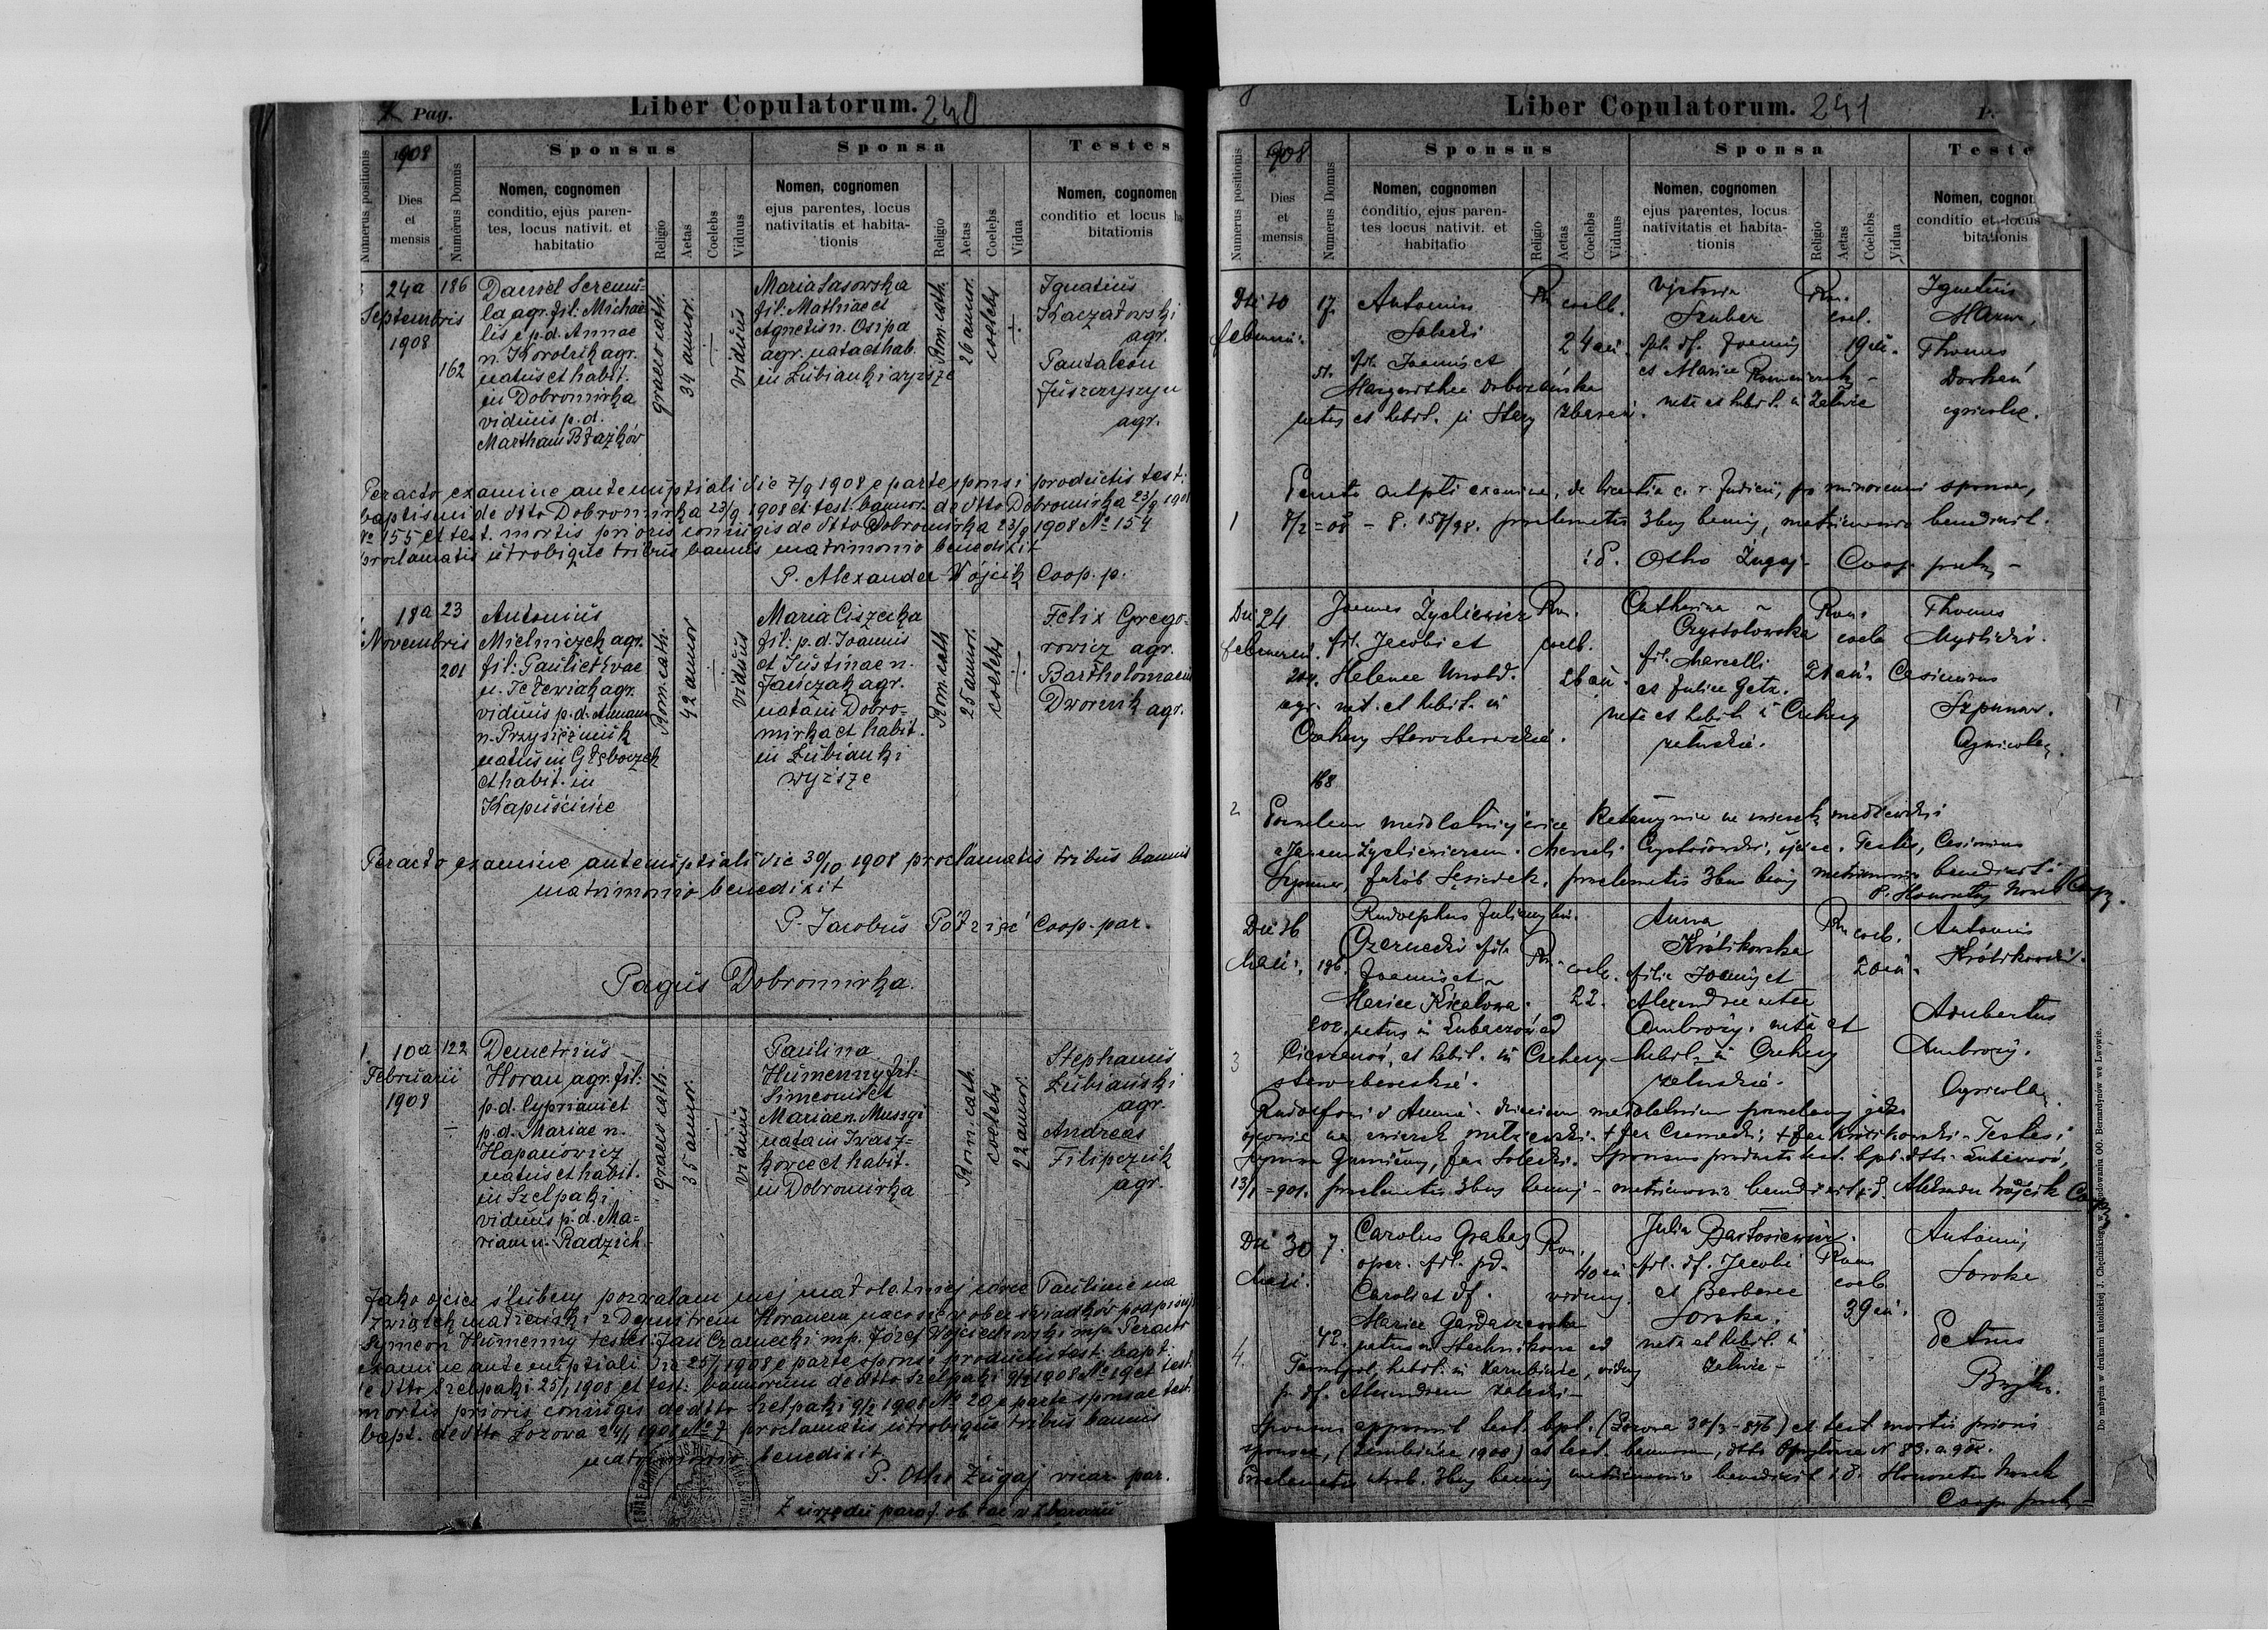 Pag.
Liber Copulatorum. 240
Numerus positionis
1908
Dies et mensis
Numerus Domus
Sponsus
Nomen, cognomen
conditio, ejus paren-
tes, locus nativit. et
habitatio
Religio
Aetas
Coelebs
Viduus
Sponsa
Nomen, cognomen
ejus parentes, locus
nativitatis et habita-
tionis
Religio
Aetas
Coelebs
Vidua
Testes
Nomen, cognomen
conditio et locus ha
bitationis
24a
Septembris
1908
186
162
Daniel
la agr. fil: Michae
lis et p.d. Annae
n. Korolzik agr.
natus et habit.
in Dobromirka
viduus p.d.
Martham Błażków
graeco cath.
34 annor.
viduus
Maria Sasowska
fil: Mathiae et
Agnetis n. Osipa
agr. nata et hab.
in Łubianki wyższe
Rom. cath.
26 annor.
coelebs
Ignatius
Kaczałowski
agr.
Pantaleon
Juszczyszyn
agr.
Peracto examine antenuptiali die 7/9 1908 e parte sponsi productis test:
baptismi de dtto Dobromirka 23/9 1908 et test. bannor. de dtto Dobromirka 23/9 1908
№ 155 et test. mortis prioris coniugis de dtto Dobromirka 23/9 1908 № 154
proclamatis utrobique tribus bannis matrimonio benedixit
P. Alexander Wójcik Coop. p.
18a
Novembris
23
201
Antonius
Mielniczek agr.
fil: Pauli et Evae
n. Telewiak agr.
viduus p.d. Annam
n. Przysiężniuk
natus in Głęboczek
et habit. in
Kapuścińce
Rom. cath.
42 annor
viduus
Maria Ciszecka
fil: p.d. Ioannis
et Justinae n.
Jańczak agr.
nata in Dobro-
mirka et habit.
in Łubianki
wyższe
Rom. cath
25 annor.
coelebs
Felix Grego-
rowicz agr.
Bartholomaeus
Dwornik agr.
Peracto examine antenuptiali die 30/10 1908 proclamatis tribus bannis
matrimonio benedixit
P. Jacobus Półzięć Coop. par.
Pagus Dobromirka.
1
10a
Februarii
1908
122
Demetrius
Horan agr. fil:
p.d. Cypriani et
p.d. Mariae n.
Hapanowicz
natus et habit.
in Szelpaki
viduus p.d. Ma-
riam n. Radzich
graeco cath.
35 annor.
viduus
Paulina
Humenny fil:
Simeonis et
Mariae n.
nata in Iwasz-
kowce et habit.
in Dobromirka
Rom. cath.
coelebs
22 annor.
Stephanus
Łubiański
agr.
Andreas
Filipczuk
agr.
Jako ojciec ślubny pozwalam mej małoletniej córce Paulinie na
związek małżeński z Dymitrem Horanem na co się w obec świadków podpisuję
Symeon Humenny testes: Jan Czarnecki mp. Józef Wojciechowski mp. Peracto
examine antenuptiali die 25/1 1908 e parte sponsi productis test. bapt.
de dtto Szelpaki 25/1 1908 et test. bannorum de dtto Szelpaki 9/2 1908 № 19 et test.
mortis prioris coniugis de dtto Szelpaki 9/2 1908 № 20 e parte sponsae test.
bapt. de dtto Łozowa 24/1 1908 № 7 proclamatis utrobique tribus bannis
matrimonio benedixit
P. Otho Żugaj vicar. par.
Z urzędu paraf. ob. łac w Zbarażu
Liber Copulatorum. 241
Numerus positionis
908
Dies et mensis
Numerus Domus
Sponsus
Nomen, cognomen
conditio, ejus paren-
tes locus nativit. et
habitatio
Religio
Aetas
Coelebs
Viduus
Sponsa
Nomen, cognomen
ejus parentes, locus
nativitatis et habita-
tionis
Religio
Aetas
Coelebs
Vidua
Teste
Nomen, cognom
conditio et locus
bitationis
Die 10
februarii
17.
Antonius
Sobecki
fil. Joannis et
Margarithae
natus et habit. in Stary Zbaraż.
Rm coelb.
24 an.
Victoria
Szuber
fil. df. Joannis
et Mariae
nata et habit. in Załuże
Rm.
coel.
19 an.
Ignatius
Mazur,
Thomas
agricolae.
1
Peracto antpti examine, de licentia c. r. Judicii, pro minorenni sponsa,
8/2 = 08 - 8. 157/98. proclamatis 3bus bannis, matrimonio benedixit.
P. Otho Żugaj Coop. par.
Die 24
februarii.
204.
Joannes Zyskiewicz
fil. Jacobi et
Helenae
agr. nat. et habit. in
Czahary Starozbarazkie.
Rm.
coelb.
26 an.
Catharina
Czystołowska
fil. Marcelli
et Juliae Getz.
nata et habit. in Czahary
załuskie.
Rom.
coelb
21 an.
Thomas
Casimirus
Szpunar.
Agricolae
168
2
Zezwalam małoletniej córce Katarzynie na związek małżeński
z Janem Zyskiewiczem. Marceli Czystołowski, ojciec. Testes, Casimirus
Szpunar, Jakób proclamatis 3bus bannis matrimonio benedixit:
P. Honoratus Nosek Coop.
Die 26
Maii.
186.
202.
Rudolphus Julianus
Czarnecki fil.
Joannis et
Mariae
natus in Lubaczów ad
Cieszanów, et habit. in Czahary
starozbarazkie.
Rm. coelb.
22.
Anna
Królikowska
filia Joannis et
Alexandrae natae
Ambroży. nata et
habit. in Czahary
załuskie.
Rm coelb.
20 an.
Antonius
Królikowski.
Adalbertus
Ambroży.
Agricolae
3
Rudolfowi i Annie dzieciom małoletnim pozwalamy jako
ojcowie na związek małżeński. + Jan Czarnecki; + Jan Królikowski. Testes:
Szymon Jan Sobecki. Sponsus produxit test. bpt. dtto Lubaczów,
13/1 = 901. proclamatis 3bus bannis matrimonio benedixit P. Alexander Wójcik Coop
Die 30
Maii.
7.
42.
Carolus Grabas
oper. fil. pd.
Caroli et df.
Mariae
natus in Stechnikowce ad
Tarnopol, habit. in viduus
p. df. Alexandram Zaleski
Rm.
40 an
viduus
Julia Bartosiewicz.
fil. df. Jacobi
et Barbarae
Soroka.
nata et habit. in
Załuże
Rom
coelb.
39 an.
Antonius
Soroka
Petrus
4.
Sponsus apposuit test. bpt. (Łozowa 30/3 - 876) et test. mortis prioris
sponsae, 1900) et test. bannorum, dtto N 83. a 908.
Proclamatis utrob. 3bus bannis matrimonio benedixit: P. Honoratus Nosek
Coop. par.
Do nabycia w drukarni katolickiej J. Chęcińskiego w zabudowaniu OO. Bernardynów we Lwowie.